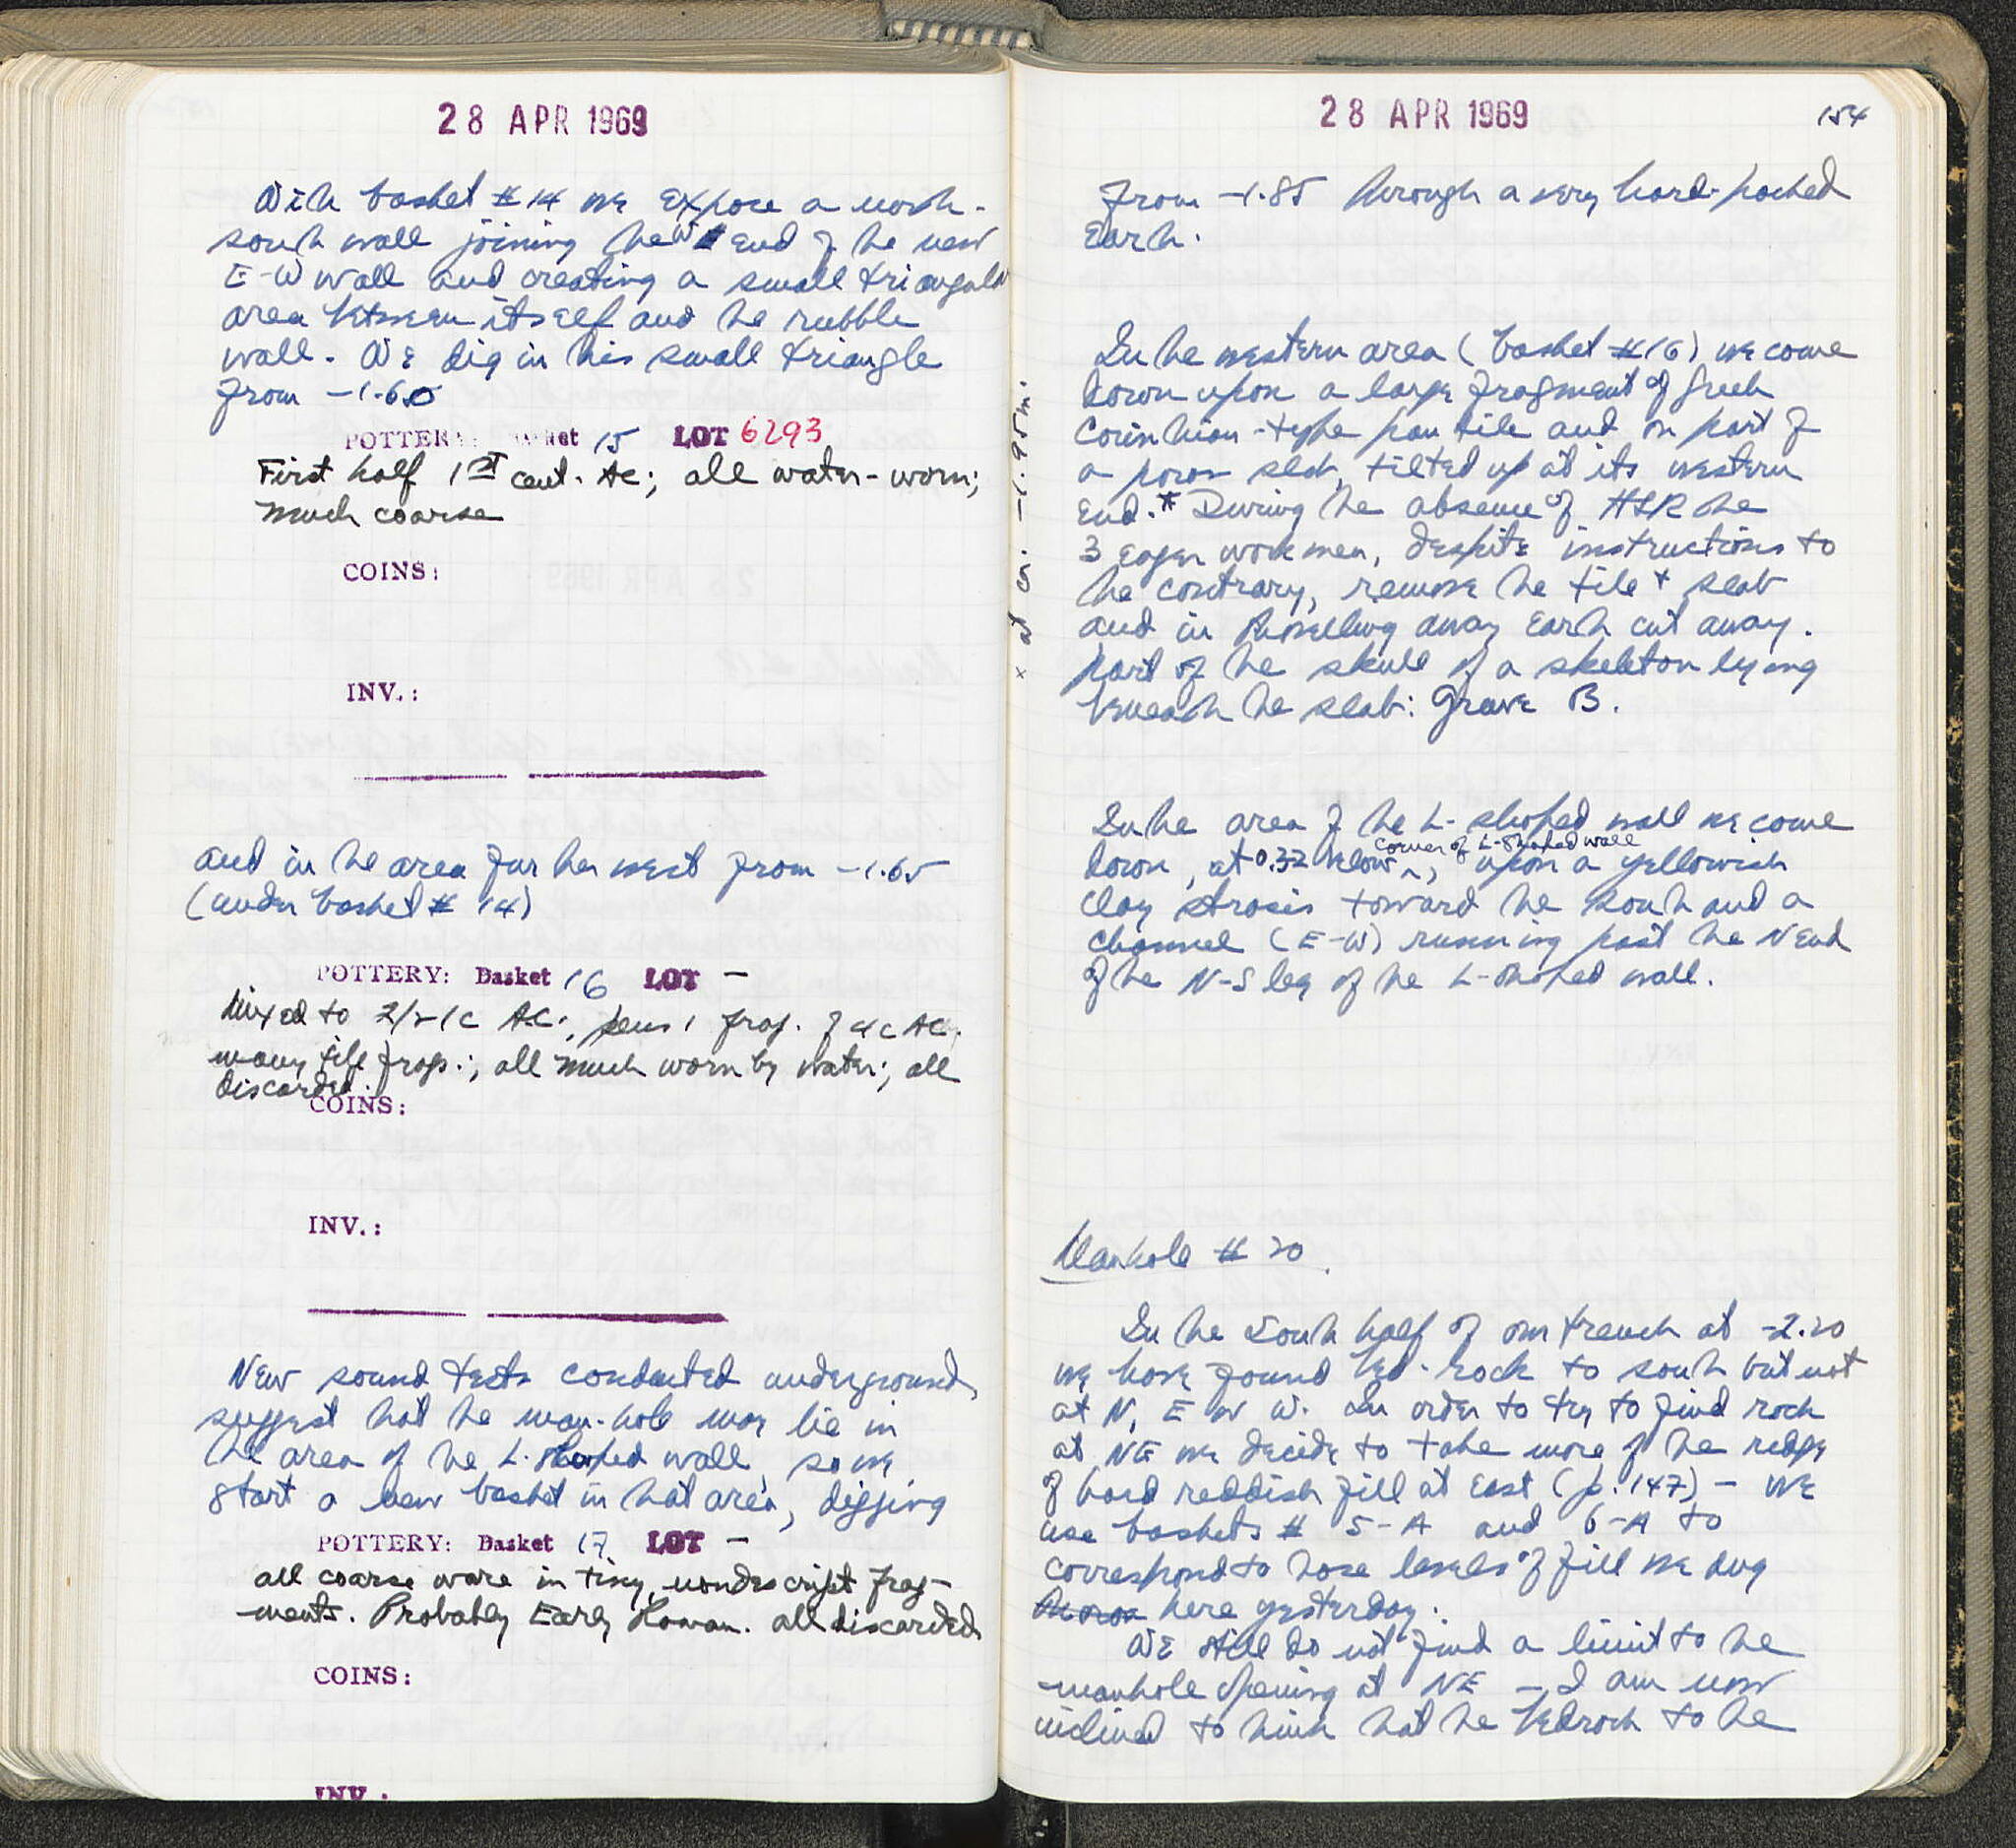 28 APR 1969
With basket #14 we expose a north-
south wall joining the W end of the new
E-W wall and creating a small triangular
area between itself and the rubble
wall. We dig in this small triangle
from -1.60
POTTERY: Basket 15 LOT 6293
First half 1st cent. AC; all water-worn;
much coarse
COINS:
INV.:
and in the area further west from -1.65
(under basket # 14)
POTTERY: Basket 16 LOT -
Mixed to 2/2 1c AC; plus 1 frag. of 4c AC.
many tile frags.; all much worn by water; all
discarded.
COINS:
INV.:
New sound tests conducted underground
suggest that the man-hole may lie in
the area of the L-shaped wall, so we
start a new basket in that area, digging
POTTERY: Basket 17 LOT -
all coarse ware in tiny, nondescript frag-
ments. Probably Early Roman. all discarded
COINS:
INV.:
28 APR 1969
154
from -1.85 through a very hard-packed
earth.
In the western area (basket #16) we come
down upon a large fragment of Greek
Corinthian-type pan tile and on part of
a poros slab, tilted up at its western
end.* During the absence of HSR the
3 eager workmen, despite instructions to
the contrary, remove the tile + slab
and in shovelling away earth cut away
part of the skull of a skeleton lying
beneath the slab: Grave B.
x at ca. -1.95m.
In the area of the L-shaped wall we come
corner of L-shaped wall
down, at 0.32 below ^, upon a yellowish
clay strosis toward the south and a
channel (E-W) running past the N end
of the N-S leg of the L-shaped wall.
Manhole # 20
In the South half of our trench at -2.20
we have found bed-rock to south but not
at N, E or W. In order to try to find rock
at NE we decide to take more of the ridge
of hard reddish fill at east (p. 147) - we
use baskets # 5-A and 6-A to
correspond to those levels of fill we dug
here yesterday.
We still do not find a limit to the
manhole opening at NE - I am now
inclined to think that the bedrock to the